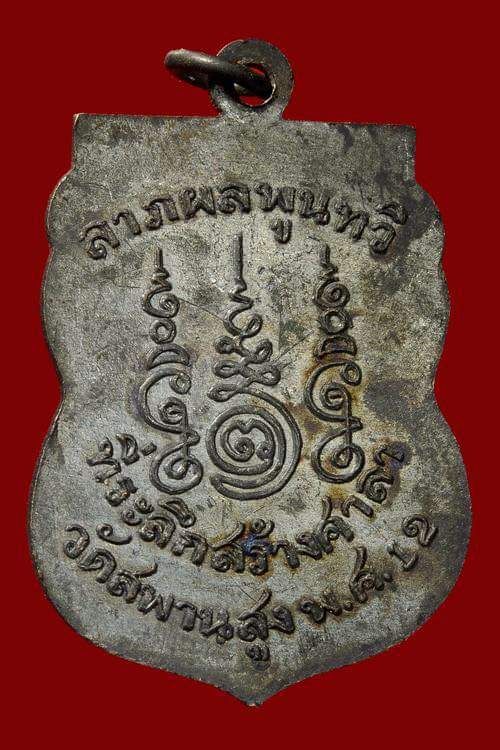 ลาภผลพูนทวี
ที่ระลึกสร้างศาลา
วัดสพานสูง พ.ศ. ๑๒